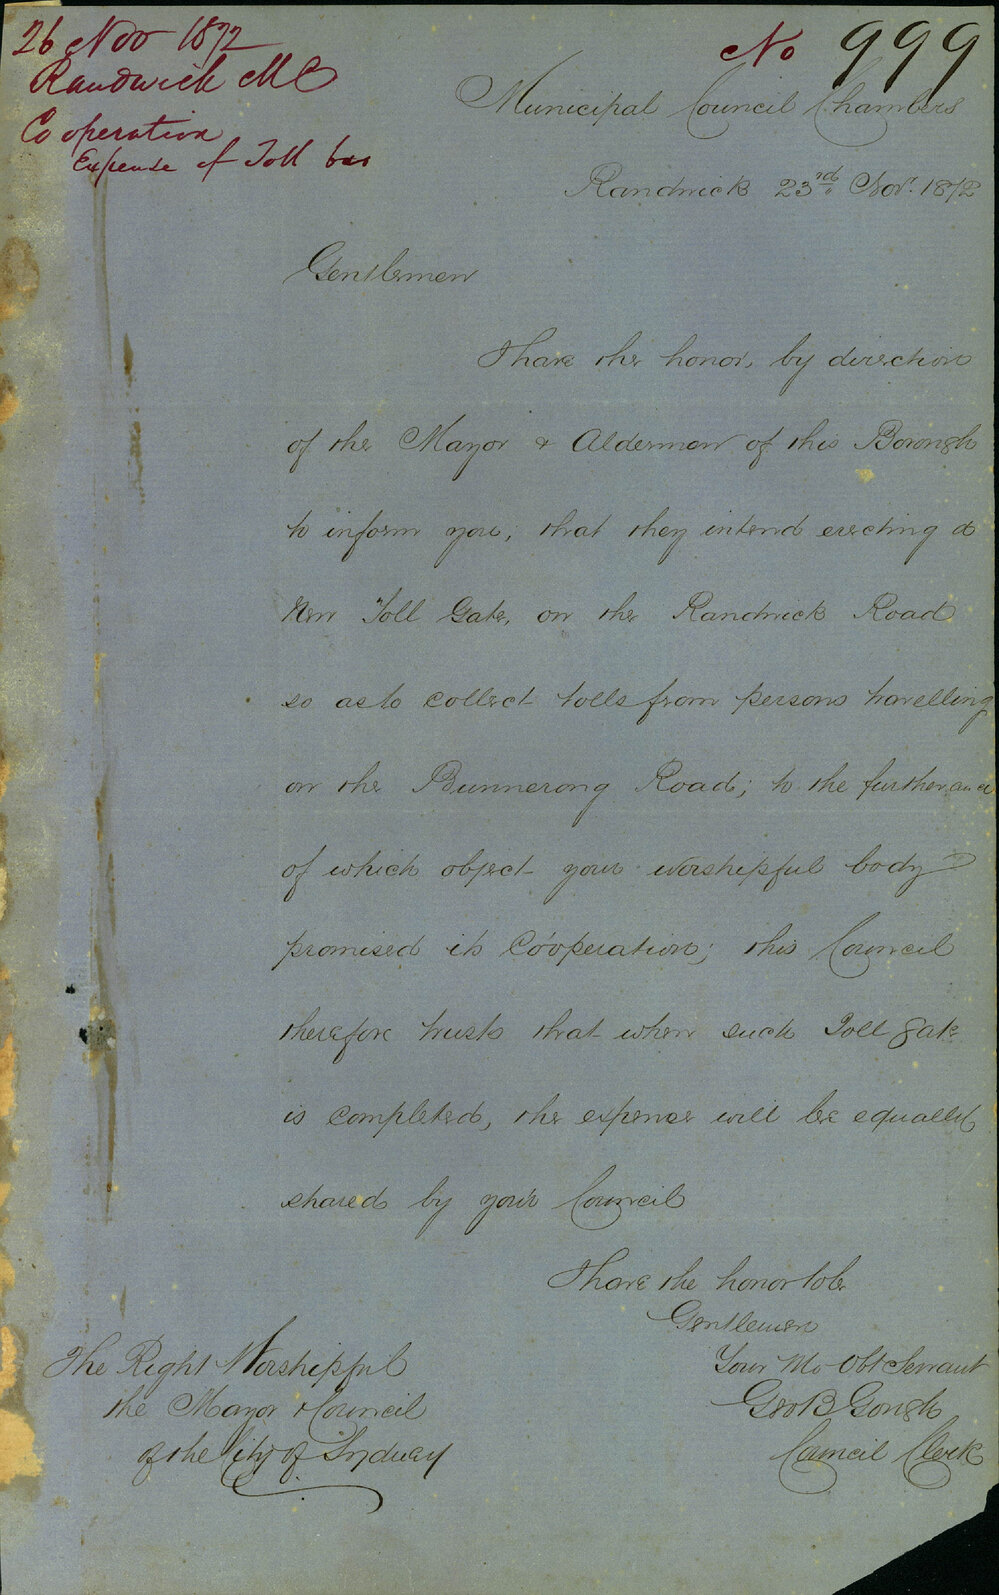 26 Nov 1872
Randwick MC
Cooperation
Expense of Toll bar
No 999
Municipal Council Chambers
Randwick 23rd Nov. 1872
Gentlemen
I have the honor, by direction
of the Mayor & Aldermen of this Borough
to inform you, that they intend erecting a
New Toll Gate, on the Randwick Road
so as to collect tolls from persons travelling
on the Bunnerong Road; to the furtherance
of which object your worshipful body
promised its Coöperation; this Council
therefore trusts that when such Toll gate
is completed, the expense will be equally
shared by your Council
I have the honor to be
Gentlemen
Your Mo Obt Servant
Geo B Gough
Council Clerk
The Right Worshipful
the Mayor & Council
of the City of Sydney